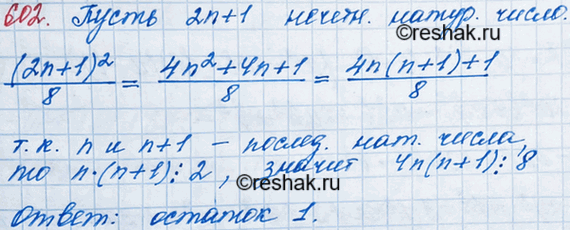 602. Пусть 2n+1 нечетн. натур. число.
(2n+1)²/8 = (4n²+4n+1)/8 = (4n(n+1)+1)/8
©reshak.ru
т.к. n и n+1 – послед. нат. числа,
то n·(n+1)⋮2, значит 4n(n+1)⋮8
©reshak.ru
Ответ: остаток 1.